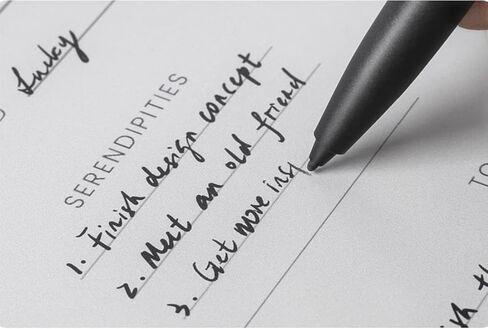 Lucky
SERENDIPITIES
1. Finish design concept
2. Meet an old friend
3. Get more insp
TO